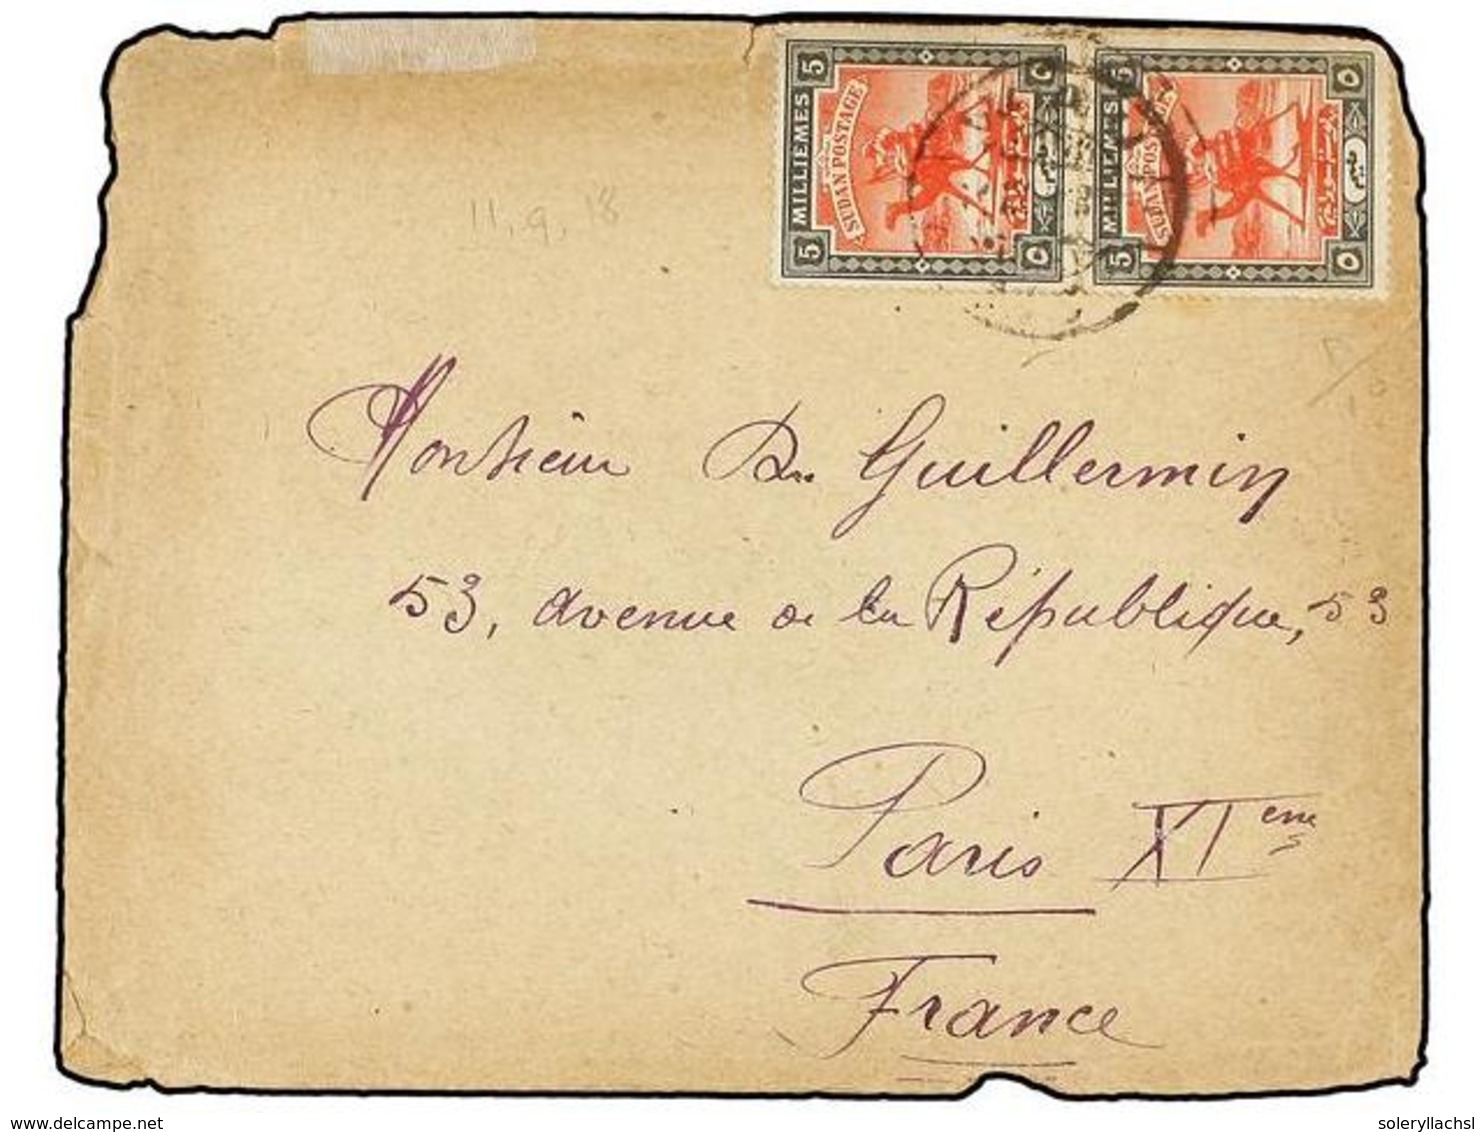 5 MILLIEMES 5
SUDAN POSTAGE
٥ ٥
5 MILLIEMES 5
SUDAN POSTAGE
٥ ٥
11.9.18
Monsieur Dr Guillermin
53, avenue de la République, 53
Paris XIeme
France
delcampe.net
soleryllachsl